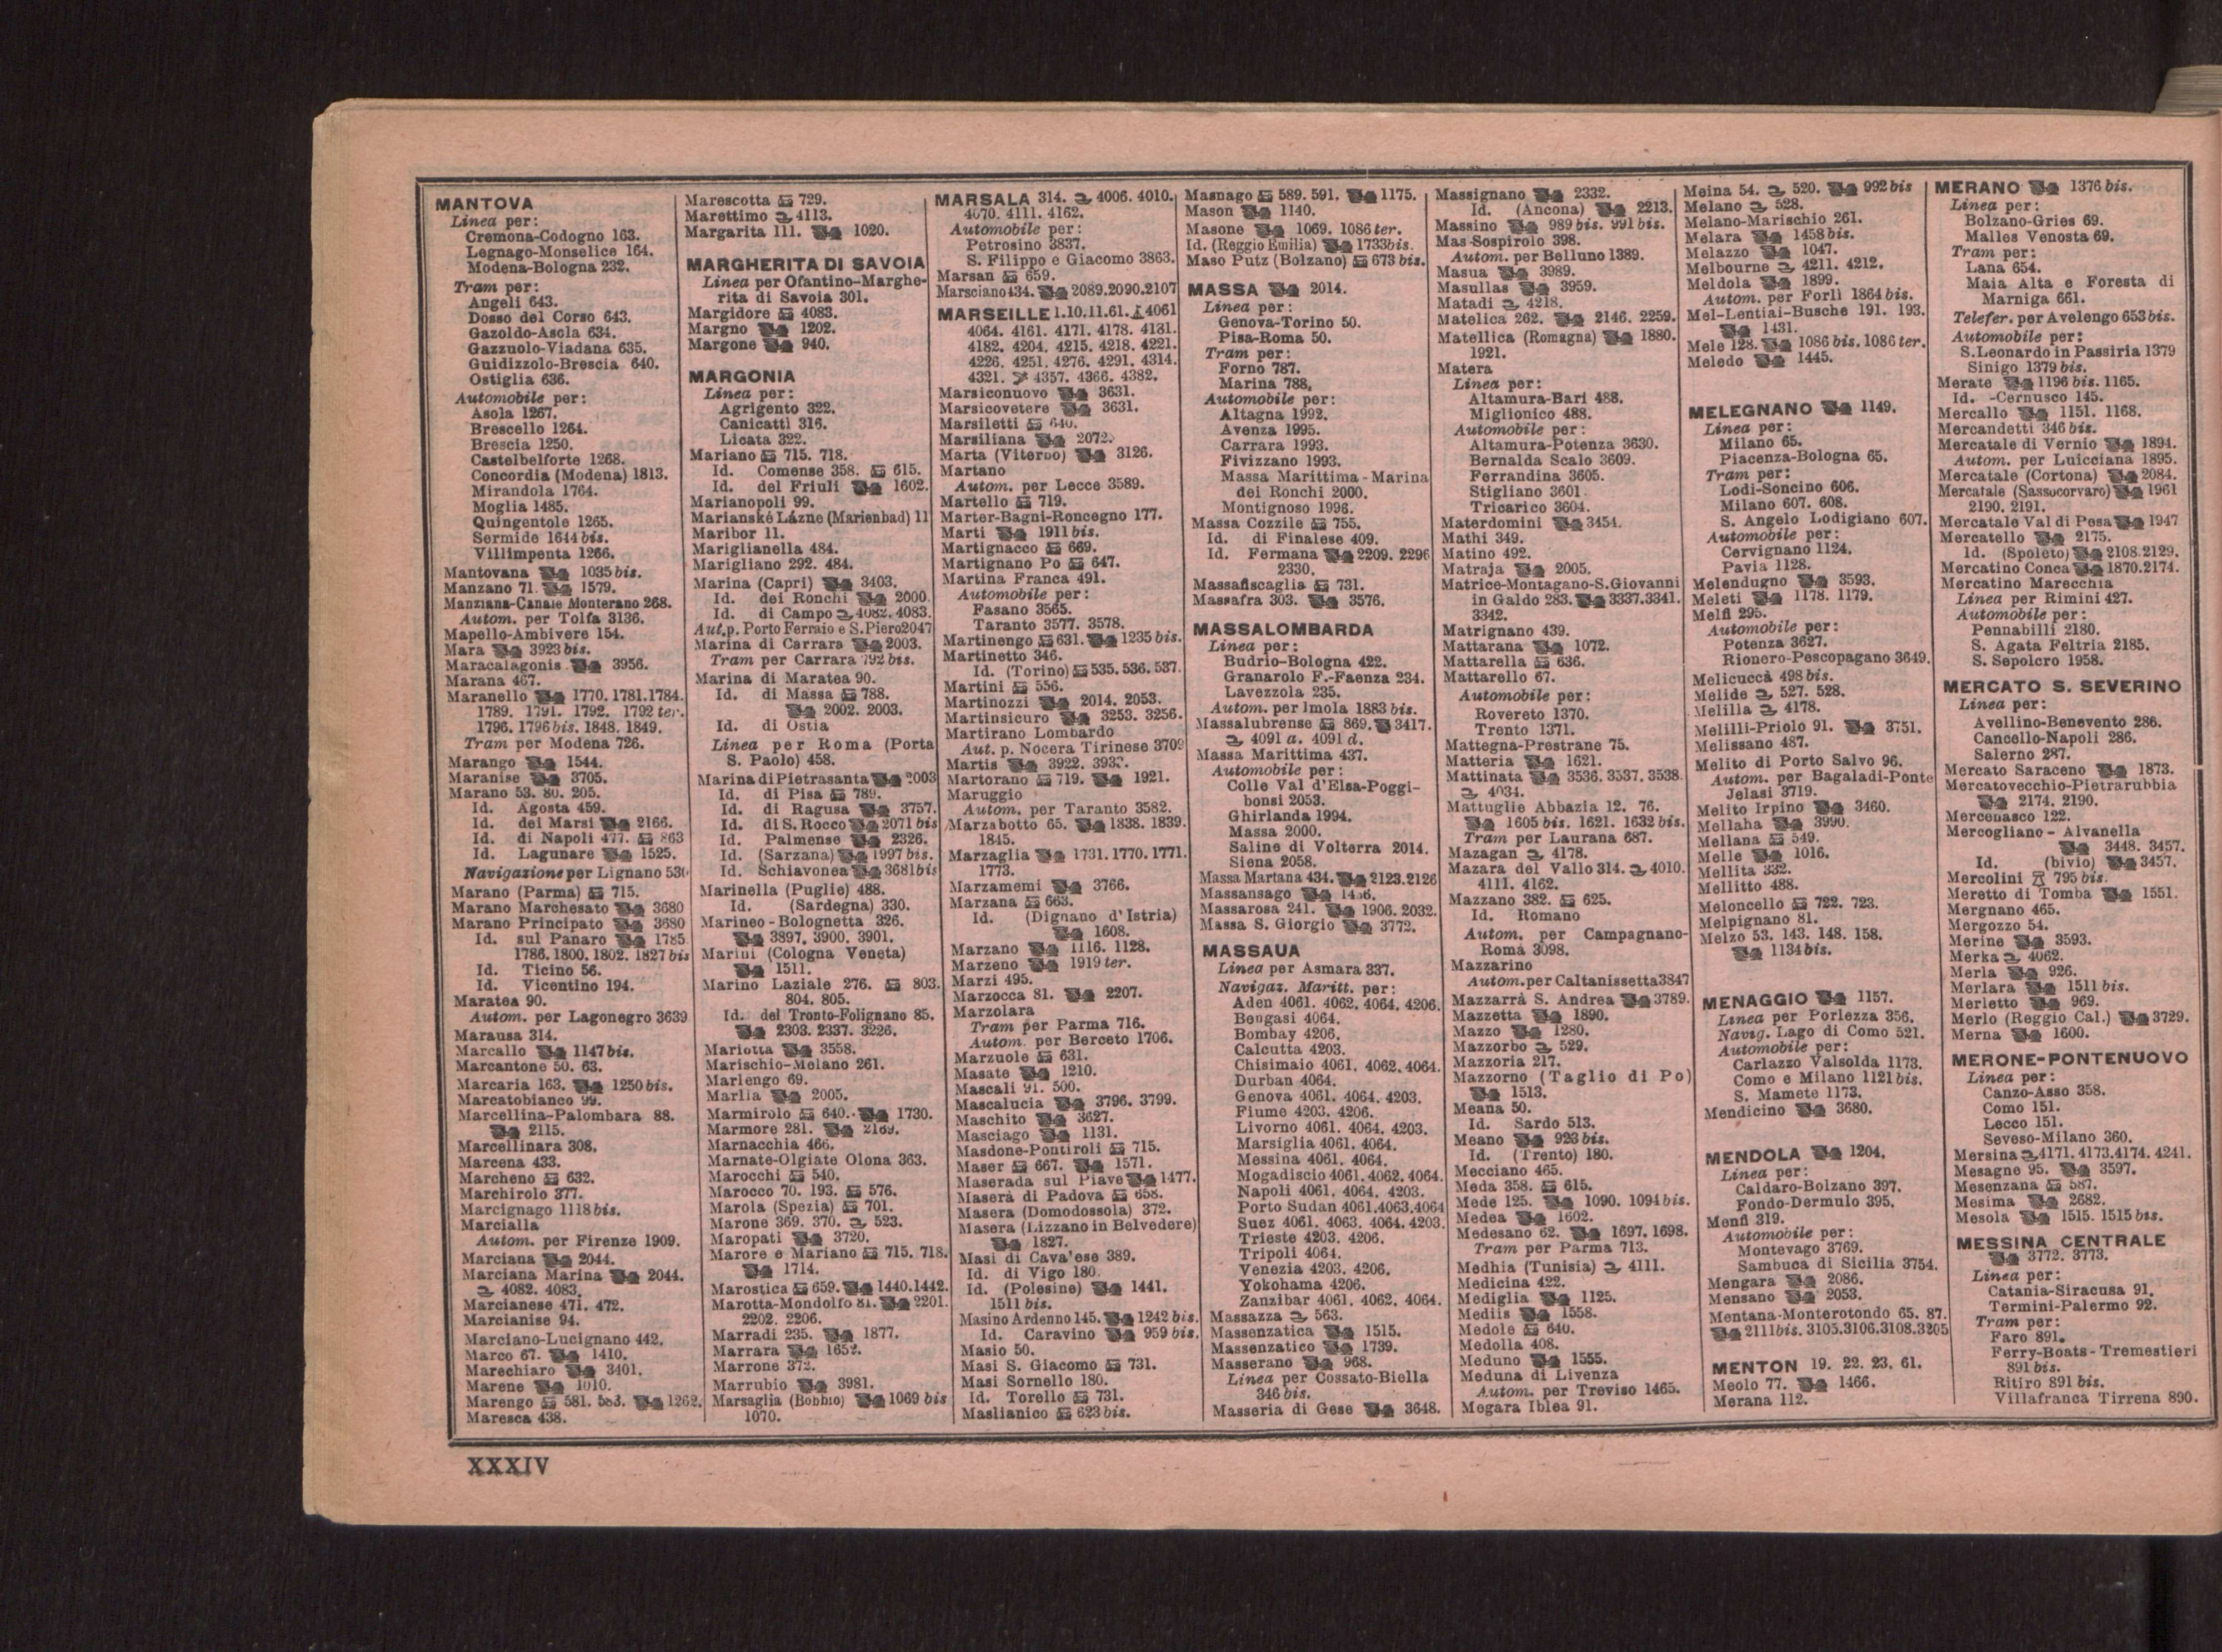 MANTOVA
Linea per:
Cremona-Codogno 163.
Legnago-Monselice 164.
Modena-Bologna 232.
Tram per:
Angeli 643.
Dosso del Corso 643.
Gazoldo-Asola 634.
Gazzuolo-Viadana 635.
Guidizzolo-Brescia 640.
Ostiglia 636.
Automobile per:
Asola 1267.
Brescello 1264.
Brescia 1250.
Castelbelforte 1268.
Concordia (Modena) 1813.
Mirandola 1764.
Moglia 1485.
Quingentole 1265.
Sermide 1644 bis.
Villimpenta 1266.
Mantovana 1035 bis.
Manzano 71. 1579.
Manziana-Canale Monterano 268.
Autom. per Tolfa 3136.
Mapello-Ambivere 154.
Mara 3923 bis.
Maracalagonis 3956.
Marana 467.
Maranello 1770. 1781. 1784.
1789. 1791. 1792. 1792 ter.
1796. 1796 bis. 1848. 1849.
Tram per Modena 726.
Marango 1544.
Maranise 3705.
Marano 53. 80. 205.
Id. Agosta 459.
Id. dei Marsi 2166.
Id. di Napoli 477. 863
Id. Lagunare 1525.
Navigazione per Lignano 530
Marano (Parma) 715.
Marano Marchesato 3680
Marano Principato 3680
Id. sul Panaro 1785.
1786. 1800. 1802. 1827 bis
Id. Ticino 56.
Id. Vicentino 194.
Maratea 90.
Autom. per Lagonegro 3639
Marausa 314.
Marcallo 1147 bis.
Marcantone 50. 63.
Marcaria 163. 1250 bis.
Marcatobianco 99.
Marcellina-Palombara 88.
2115.
Marcellinara 308.
Marcena 433.
Marcheno 632.
Marchirolo 377.
Marcignago 1118 bis.
Marcialla
Autom. per Firenze 1909.
Marciana 2044.
Marciana Marina 2044.
4082. 4083.
Marcianese 471. 472.
Marcianise 94.
Marciano-Lucignano 442.
Marco 67. 1410.
Marechiaro 3401.
Marene 1010.
Marengo 581. 583. 1262.
Maresca 438.
Marescotta 729.
Marettimo 4113.
Margarita 111. 1020.
MARGHERITA DI SAVOIA
Linea per Ofantino-Marghe-
rita di Savoia 301.
Margidore 4083.
Margno 1202.
Margone 940.
MARGONIA
Linea per:
Agrigento 322.
Canicatti 316.
Licata 322.
Mariano 715. 718.
Id. Comense 358. 615.
Id. del Friuli 1602.
Marianopoli 99.
Marianské Lázne (Marienbad) 11
Maribor 11.
Mariglianella 484.
Marigliano 292. 484.
Marina (Capri) 3403.
Id. dei Ronchi 2000.
Id. di Campo 4082. 4083.
Aut. p. Porto Ferraio e S. Piero 2047
Marina di Carrara 2003.
Tram per Carrara 792 bis.
Marina di Maratea 90.
Id. di Massa 788.
2002. 2003.
Id. di Ostia
Linea per Roma (Porta
S. Paolo) 458.
Marina di Pietrasanta 2003
Id. di Pisa 789.
Id. di Ragusa 3757.
Id. di S. Rocco 2071 bis
Id. Palmense 2326.
Id. (Sarzana) 1997 bis.
Id. Schiavonea 3681 bis
Marinella (Puglie) 488.
Id. (Sardegna) 330.
Marineo-Bolognetta 326.
3897. 3900. 3901.
Marini (Cologna Veneta)
1511.
Marino Laziale 276. 803.
804. 805.
Id. del Tronto-Folignano 85.
2303. 2337. 3226.
Mariotta 3558.
Marischio-Melano 261.
Marlengo 69.
Marlia 2005.
Marmirolo 640. 1730.
Marmore 281. 2169.
Marnacchia 466.
Marnate-Olgiate Olona 363.
Marocchi 540.
Marocco 70. 193. 576.
Marola (Spezia) 701.
Marone 369. 370. 523.
Maropati 3720.
Marore e Mariano 715. 718.
1714.
Marostica 659. 1440. 1442.
Marotta-Mondolfo 81. 2201.
2202. 2206.
Marradi 235. 1877.
Marrara 1652.
Marrone 372.
Marrubio 3981.
Marsaglia (Bobbio) 1069 bis
1070.
MARSALA 314. 4006. 4010.
4070. 4111. 4162.
Automobile per:
Petrosino 3837.
S. Filippo e Giacomo 3863.
Marsan 659.
Marsciano 434. 2089. 2090. 2107
MARSEILLE 1. 10. 11. 61. 4061
4064. 4161. 4171. 4178. 4181.
4182. 4204. 4215. 4218. 4221.
4226. 4251. 4276. 4291. 4314.
4321. 4357. 4366. 4382.
Marsiconuovo 3631.
Marsicovetere 3631.
Marsiletti 640.
Marsiliana 2072.
Marta (Viterbo) 3126.
Martano
Autom. per Lecce 3589.
Martello 719.
Marter-Bagni-Roncegno 177.
Marti 1911 bis.
Martignacco 669.
Martignano Po 647.
Martina Franca 491.
Automobile per:
Fasano 3565.
Taranto 3577. 3578.
Martinengo 631. 1235 bis.
Martinetto 346.
Id. (Torino) 535. 536. 537.
Martini 556.
Martinozzi 2014. 2053.
Martinsicuro 3253. 3256.
Martirano Lombardo
Aut. p. Nocera Tirinese 3709
Martis 3922.
Martorano 719. 1921.
Maruggio
Autom. per Taranto 3582.
Marzabotto 65. 1838. 1839.
1845.
Marzaglia 1731. 1770. 1771.
1773.
Marzamemi 3766.
Marzana 663.
Id. (Dignano d'Istria)
1608.
Marzano 1116. 1128.
Marzeno 1919 ter.
Marzi 495.
Marzocca 81. 2207.
Marzolara
Tram per Parma 716.
Autom. per Berceto 1706.
Marzuole 631.
Masate 1210.
Mascali 91. 500.
Mascalucia 3796. 3799.
Maschito 3627.
Masciago 1131.
Masdone-Pontiroli 715.
Maser 667. 1571.
Maserada sul Piave 1477.
Maserà di Padova 658.
Masera (Domodossola) 372.
Masera (Lizzano in Belvedere)
1827.
Masi di Cava'ese 389.
Id. di Vigo 180.
Id. (Polesine) 1441.
1511 bis.
Masino Ardenno 145. 1242 bis.
Id. Caravino 959 bis.
Masio 50.
Masi S. Giacomo 731.
Masi Sornello 180.
Id. Torello 731.
Maslianico 623 bis.
Masnago 589. 591. 1175.
Mason 1140.
Masone 1069. 1086 ter.
Id. (Reggio Emilia) 1733 bis.
Maso Putz (Bolzano) 673 bis.
MASSA 2014.
Linea per:
Genova-Torino 50.
Pisa-Roma 50.
Tram per:
Forno 787.
Marina 788.
Automobile per:
Altagna 1992.
Avenza 1995.
Carrara 1993.
Fivizzano 1993.
Massa Marittima-Marina
dei Ronchi 2000.
Montignoso 1996.
Massa Cozzile 755.
Id. di Finalese 409.
Id. Fermana 2209. 2296
2330.
Massafiscaglia 731.
Massafra 303. 3576.
MASSALOMBARDA
Linea per:
Budrio-Bologna 422.
Granarolo F.-Faenza 234.
Lavezzola 235.
Autom. per Imola 1883 bis.
Massalubrense 869. 3417.
4091 a. 4091 d.
Massa Marittima 437.
Automobile per:
Colle Val d'Elsa-Poggi-
bonsi 2053.
Ghirlanda 1994.
Massa 2000.
Saline di Volterra 2014.
Siena 2058.
Massa Martana 434. 2123. 2126
Massansago 1456.
Massarosa 241. 1906. 2032.
Massa S. Giorgio 3772.
MASSAUA
Linea per Asmara 337.
Navigaz. Maritt. per:
Aden 4061. 4062. 4064. 4206.
Bengasi 4064.
Bombay 4206.
Calcutta 4203.
Chisimaio 4061. 4062. 4064.
Durban 4064.
Genova 4061. 4064. 4203.
Fiume 4203. 4206.
Livorno 4061. 4064. 4203.
Marsiglia 4061. 4064.
Messina 4061. 4064.
Mogadiscio 4061. 4062. 4064.
Napoli 4061. 4064. 4203.
Porto Sudan 4061. 4063. 4064
Suez 4061. 4063. 4064. 4203.
Trieste 4203. 4206.
Tripoli 4064.
Venezia 4203. 4206.
Yokohama 4206.
Zanzibar 4061. 4062. 4064.
Massazza 563.
Massenzatica 1515.
Massenzatico 1739.
Masserano 968.
Linea per Cossato-Biella
346 bis.
Masseria di Gese 3648.
Massignano 2332.
Id. (Ancona) 2213.
Massino 989 bis. 991 bis.
Mas-Sospirolo 398.
Autom. per Belluno 1389.
Masua 3989.
Masullas 3959.
Matadi 4218.
Matelica 262. 2146. 2259.
Matellica (Romagna) 1880.
1921.
Matera
Linea per:
Altamura-Bari 488.
Miglionico 488.
Automobile per:
Altamura-Potenza 3630.
Bernalda Scalo 3609.
Ferrandina 3605.
Stigliano 3601.
Tricarico 3604.
Materdomini 3454.
Mathi 349.
Matino 492.
Matraja 2005.
Matrice-Montagano-S. Giovanni
in Galdo 283. 3337. 3341.
3342.
Matrignano 439.
Mattarana 1072.
Mattarella 636.
Mattarello 67.
Automobile per:
Rovereto 1370.
Trento 1371.
Mattegna-Prestrane 75.
Matteria 1621.
Mattinata 3536. 3537. 3538.
4034.
Mattuglie Abbazia 12. 76.
1605 bis. 1621. 1632 bis.
Tram per Laurana 687.
Mazagan 4178.
Mazara del Vallo 314. 4010.
4111. 4162.
Mazzano 382. 625.
Id. Romano
Autom. per Campagnano-
Roma 3098.
Mazzarino
Autom. per Caltanissetta 3847
Mazzarrà S. Andrea 3789.
Mazzetta 1890.
Mazzo 1280.
Mazzorbo 529.
Mazzoria 217.
Mazzorno (Taglio di Po)
1513.
Meana 50.
Id. Sardo 513.
Meano 923 bis.
Id. (Trento) 180.
Mecciano 465.
Meda 358. 615.
Mede 125. 1090. 1094 bis.
Medea 1602.
Medesano 62. 1697. 1698.
Tram per Parma 713.
Medhia (Tunisia) 4111.
Medicina 422.
Mediglia 1125.
Mediis 1558.
Medole 640.
Medolla 408.
Meduno 1555.
Meduna di Livenza
Autom. per Treviso 1465.
Megara Iblea 91.
Meina 54. 520. 992 bis
Melano 528.
Melano-Marischio 261.
Melara 1458 bis.
Melazzo 1047.
Melbourne 4211. 4212.
Meldola 1899.
Autom. per Forlì 1864 bis.
Mel-Lentiai-Busche 191. 193.
1431.
Mele 128. 1086 bis. 1086 ter.
Meledo 1445.
MELEGNANO 1149.
Linea per:
Milano 65.
Piacenza-Bologna 65.
Tram per:
Lodi-Soncino 606.
Milano 607. 608.
S. Angelo Lodigiano 607.
Automobile per:
Cervignano 1124.
Pavia 1128.
Melendugno 3593.
Meleti 1178. 1179.
Melfi 295.
Automobile per:
Potenza 3627.
Rionero-Pescopagano 3649.
Melicuccà 498 bis.
Melide 527. 528.
Melilla 4178.
Melilli-Priolo 91. 3751.
Melissano 487.
Melito di Porto Salvo 96.
Autom. per Bagaladi-Ponte
Jelasi 3719.
Melito Irpino 3460.
Mellaha 3990.
Mellana 549.
Melle 1016.
Mellita 332.
Mellitto 488.
Meloncello 722. 723.
Melpignano 81.
Melzo 53. 143. 148. 158.
1134 bis.
MENAGGIO 1157.
Linea per Porlezza 356.
Navig. Lago di Como 521.
Automobile per:
Carlazzo Valsolda 1173.
Como e Milano 1121 bis.
S. Mamete 1173.
Mendicino 3680.
MENDOLA 1204.
Linea per:
Caldaro-Bolzano 397.
Fondo-Dermulo 395.
Menfi 319.
Automobile per:
Montevago 3769.
Sambuca di Sicilia 3754.
Mengara 2086.
Mensano 2053.
Mentana-Monterotondo 65. 87.
2111 bis. 3105. 3106. 3108. 3205
MENTON 19. 22. 23. 61.
Meolo 77. 1466.
Merana 112.
MERANO 1376 bis.
Linea per:
Bolzano-Gries 69.
Malles Venosta 69.
Tram per:
Lana 654.
Maia Alta e Foresta di
Marniga 661.
Telefer. per Avelengo 653 bis.
Automobile per:
S. Leonardo in Passiria 1379
Sinigo 1379 bis.
Merate 1196 bis. 1165.
Id. -Cernusco 145.
Mercallo 1151. 1168.
Mercandetti 346 bis.
Mercatale di Vernio 1894.
Autom. per Luicciana 1895.
Mercatale (Cortona) 2084.
Mercatale (Sassocorvaro) 1961
2190. 2191.
Mercatale Val di Pesa 1947
Mercatello 2175.
Id. (Spoleto) 2108. 2129.
Mercatino Conca 1870. 2174.
Mercatino Marecchia
Linea per Rimini 427.
Automobile per:
Pennabilli 2180.
S. Agata Feltria 2185.
S. Sepolcro 1958.
MERCATO S. SEVERINO
Linea per:
Avellino-Benevento 286.
Cancello-Napoli 286.
Salerno 287.
Mercato Saraceno 1873.
Mercatovecchio-Pietrarubbia
2174. 2190.
Mercenasco 122.
Mercogliano-Alvanella
3448. 3457.
Id. (bivio) 3457.
Mercolini 795 bis.
Meretto di Tomba 1551.
Mergnano 465.
Mergozzo 54.
Merine 3593.
Merka 4062.
Merla 926.
Merlara 1511 bis.
Merletto 969.
Merlo (Reggio Cal.) 3729.
Merna 1600.
MERONE-PONTENUOVO
Linea per:
Canzo-Asso 358.
Como 151.
Lecco 151.
Seveso-Milano 360.
Mersina 4171. 4173. 4174. 4241.
Mesagne 95. 3597.
Mesenzana 587.
Mesima 2682.
Mesola 1515. 1515 bis.
MESSINA CENTRALE
3772. 3773.
Linea per:
Catania-Siracusa 91.
Termini-Palermo 92.
Tram per:
Faro 891.
Ferry-Boats-Tremestieri
891 bis.
Ritiro 891 bis.
Villafranca Tirrena 890.
XXXIV